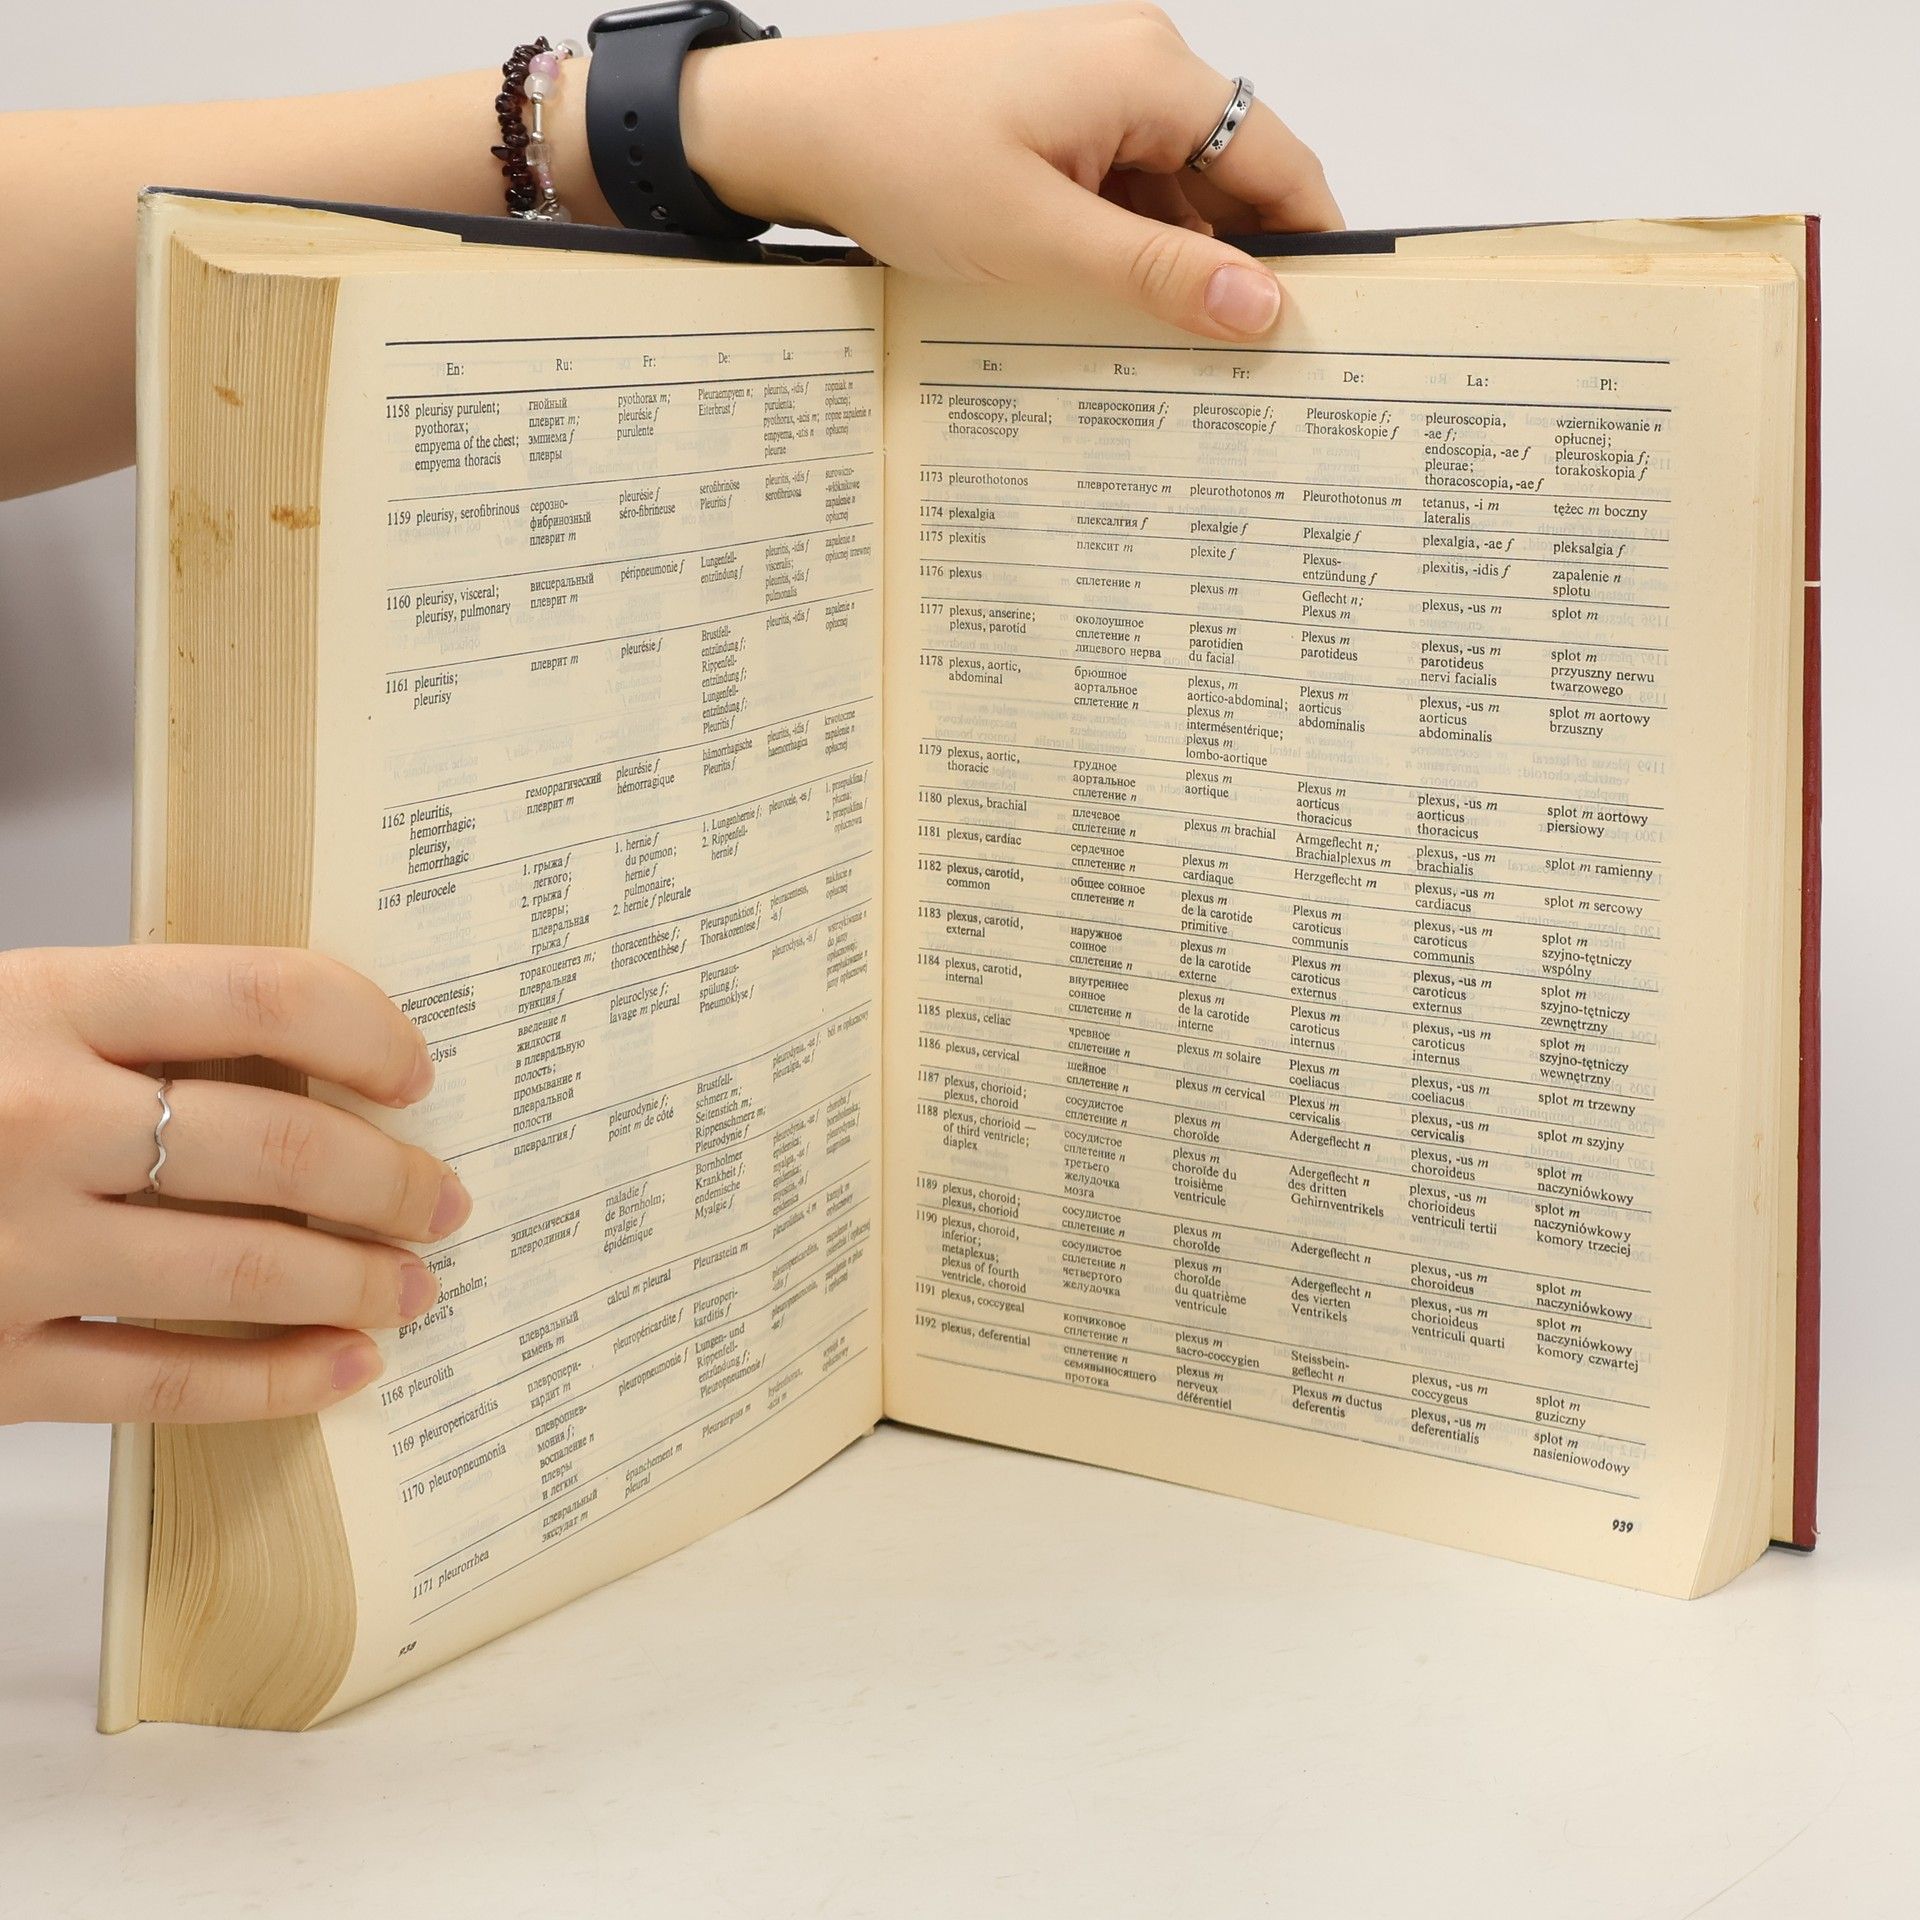 En:
Ru:
Fr:
De:
La:
Pl:
1158 pleurisy purulent;
pyothorax;
empyema of the chest;
empyema thoracis
гнойный
плеврит m;
эмпиема f
плевры
pyothorax m;
pleurésie f
purulente
Pleuraempyem n;
Eiterbrust f
pleuritis, -idis f
purulenta;
pyothorax, -acis m;
empyema, -atis n
pleurae
ropniak m
opłucnej;
ropne zapalenie n
opłucnej
1159 pleurisy, serofibrinous
серозно-
фибринозный
плеврит m
pleurésie f
séro-fibrineuse
serofibrinöse
Pleuritis f
pleuritis, -idis f
serofibrinosa
surowiczo-
-włóknikowe
zapalenie n
opłucnej
1160 pleurisy, visceral;
pleurisy, pulmonary
висцеральный
плеврит m
péripneumonie f
Lungenfell-
entzündung f
pleuritis, -idis f
visceralis;
pleuritis, -idis f
pulmonalis
zapalenie n
opłucnej trzewnej
1161 pleuritis;
pleurisy
плеврит m
pleurésie f
Brustfell-
entzündung f;
Rippenfell-
entzündung f;
Lungenfell-
entzündung f;
Pleuritis f
pleuritis, -idis f
zapalenie n
opłucnej
1162 pleuritis,
hemorrhagic;
pleurisy,
hemorrhagic
геморрагический
плеврит m
pleurésie f
hémorragique
hämorrhagische
Pleuritis f
pleuritis, -idis f
haemorrhagica
krwotoczne
zapalenie n
opłucnej
1163 pleurocele
1. грыжа f
легкого;
2. грыжа f
плевры;
плевральная
грыжа f
1. hernie f
du poumon;
hernie f
pulmonaire;
2. hernie f pleurale
1. Lungenhernie f;
2. Rippenfell-
hernie f
pleurocele, -es f
1. przepuklina f
płucna;
2. przepuklina f
opłucnowa
pleurocentesis;
oracocentesis
торакоцентез m;
плевральная
пункция f
thoracenthèse f;
thoracocenthèse f
Pleurapunktion f;
Thorakozentese f
pleurocentesis,
-is f
nakłucie n
opłucnej
clysis
введение n
жидкости
в плевральную
полость;
промывание n
плевральной
полости
pleuroclyse f;
lavage m pleural
Pleuraaus-
spülung f;
Pneumoklyse f
pleuroclysis, -is f
wstrzykiwanie n
do jamy
opłucnowej;
przepłukiwanie n
jamy opłucnowej
плевралгия f
pleurodynie f;
point m de côté
Brustfell-
schmerz m;
Seitenstich m;
Rippenschmerz m;
Pleurodynie f
pleurodynia, -ae f;
pleuralgia, -ae f
ból m opłucnowy
dynia,
Bornholm;
grip, devil's
эпидемическая
плевродиния f
maladie f
de Bornholm;
myalgie f
épidémique
Bornholmer
Krankheit f;
endemische
Myalgie f
pleurodynia, -ae f
epidemica;
myalgia, -ae f
epidemica;
myositis, -is f
epidemica
choroba f
bornholmska;
pleurodynia f
1168 pleurolith
плевральный
камень m
calcul m pleural
Pleurastein m
pleurolithus, -i m
kamyk m
opłucnowy
1169 pleuropericarditis
плевропери-
кардит m
pleuropéricardite f
Pleuroperi-
karditis f
pleuropericarditis,
-idis f
zapalenie n
osierdzia i opłucnej
1170 pleuropneumonia
плевропнев-
мония f;
воспаление n
плевры
и легких
pleuropneumonie f
Lungen- und
Rippenfell-
entzündung f;
Pleuropneumonie f
pleuropneumonia,
-ae f
zapalenie n płuc
i opłucnej
1171 pleurorrhea
плевральный
экссудат m
épanchement m
pleural
Pleuraerguss m
hydrothorax,
-acis m
wysięk m
opłucnowy
938
En:
Ru:
Fr:
De:
La:
Pl:
1172 pleuroscopy;
endoscopy, pleural;
thoracoscopy
плевроскопия f;
торакоскопия f
pleuroscopie f;
thoracoscopie f
Pleuroskopie f;
Thorakoskopie f
pleuroscopia,
-ae f;
endoscopia, -ae f
pleurae;
thoracoscopia, -ae f
wziernikowanie n
opłucnej;
pleuroskopia f;
torakoskopia f
1173 pleurothotonos
плевротетанус m
pleurothotonos m
Pleurothotonus m
tetanus, -i m
lateralis
tężec m boczny
1174 plexalgia
плексалгия f
plexalgie f
Plexalgie f
plexalgia, -ae f
pleksalgia f
1175 plexitis
плексит m
plexite f
Plexus-
entzündung f
plexitis, -idis f
zapalenie n
splotu
1176 plexus
сплетение n
plexus m
Geflecht n;
Plexus m
plexus, -us m
splot m
1177 plexus, anserine;
plexus, parotid
околоушное
сплетение n
лицевого нерва
plexus m
parotidien
du facial
Plexus m
parotideus
plexus, -us m
parotideus
nervi facialis
splot m
przyuszny nerwu
twarzowego
1178 plexus, aortic,
abdominal
брюшное
аортальное
сплетение n
plexus, m
aortico-abdominal;
plexus m
intermésentérique;
plexus m
lombo-aortique
Plexus m
aorticus
abdominalis
plexus, -us m
aorticus
abdominalis
splot m aortowy
brzuszny
1179 plexus, aortic,
thoracic
грудное
аортальное
сплетение n
plexus m
aortique
Plexus m
aorticus
thoracicus
plexus, -us m
aorticus
thoracicus
splot m aortowy
piersiowy
1180 plexus, brachial
плечевое
сплетение n
plexus m brachial
Armgeflecht n;
Brachialplexus m
plexus, -us m
brachialis
splot m ramienny
1181 plexus, cardiac
сердечное
сплетение n
plexus m
cardiaque
Herzgeflecht m
plexus, -us m
cardiacus
splot m sercowy
1182 plexus, carotid,
common
общее сонное
сплетение n
plexus m
de la carotide
primitive
Plexus m
caroticus
communis
plexus, -us m
caroticus
communis
splot m
szyjno-tętniczy
wspólny
1183 plexus, carotid,
external
наружное
сонное
сплетение n
plexus m
de la carotide
externe
Plexus m
caroticus
externus
plexus, -us m
caroticus
externus
splot m
szyjno-tętniczy
zewnętrzny
1184 plexus, carotid,
internal
внутреннее
сонное
сплетение n
plexus m
de la carotide
interne
Plexus m
caroticus
internus
plexus, -us m
caroticus
internus
splot m
szyjno-tętniczy
wewnętrzny
1185 plexus, celiac
чревное
сплетение n
plexus m solaire
Plexus m
coeliacus
plexus, -us m
coeliacus
splot m trzewny
1186 plexus, cervical
шейное
сплетение n
plexus m cervical
Plexus m
cervicalis
plexus, -us m
cervicalis
splot m szyjny
1187 plexus, chorioid;
plexus, choroid
сосудистое
сплетение n
plexus m
choroïde
Adergeflecht n
plexus, -us m
choroideus
splot m
naczyniówkowy
1188 plexus, chorioid —
of third ventricle;
diaplex
сосудистое
сплетение n
третьего
желудочка
мозга
plexus m
choroïde du
troisième
ventricule
Adergeflecht n
des dritten
Gehirnventrikels
plexus, -us m
chorioideus
ventriculi tertii
splot m
naczyniówkowy
komory trzeciej
1189 plexus, choroid;
plexus, chorioid
сосудистое
сплетение n
plexus m
choroïde
Adergeflecht n
plexus, -us m
choroideus
splot m
naczyniówkowy
1190 plexus, choroid,
inferior;
metaplexus;
plexus of fourth
ventricle, choroid
сосудистое
сплетение n
четвертого
желудочка
plexus m
choroïde
du quatrième
ventricule
Adergeflecht n
des vierten
Ventrikels
plexus, -us m
chorioideus
ventriculi quarti
splot m
naczyniówkowy
komory czwartej
1191 plexus, coccygeal
копчиковое
сплетение n
plexus m
sacro-coccygien
Steissbein-
geflecht n
plexus, -us m
coccygeus
splot m
guziczny
1192 plexus, deferential
сплетение n
семявыносящего
протока
plexus m
nerveux
déférentiel
Plexus m ductus
deferentis
plexus, -us m
deferentialis
splot m
nasieniowodowy
939